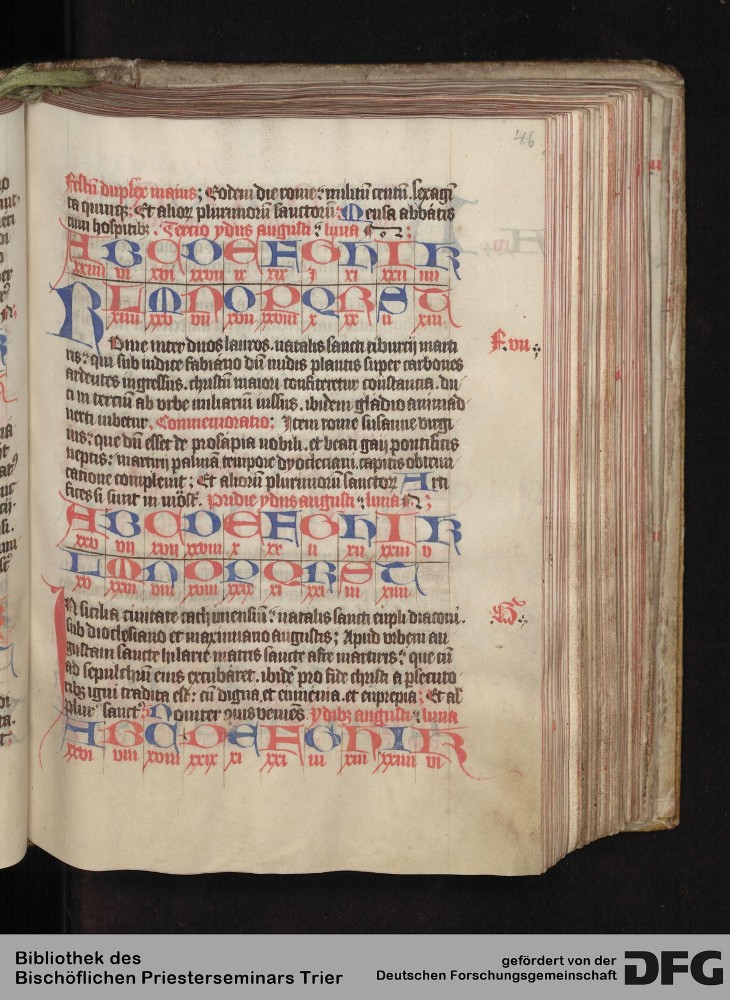 46
festū duplex maius; Eodem die rome: militū centū sexagī
ta quinqz; Et alior plurimorū sanctorū: Mensa abbatis
cum hospitibz. Tercio ydus augusti: luna
A B C D E F G H I K
xxiiii vi xvi xxvii ix xix i xi xxii iiii
L M N O P Q R S T
xiiii xxv vii xvii xxviii x xx ii xiii
Rome inter duos lauros. natalis sancti tiburtij marti
ris: qui sub iudice fabiano dū nudis plantis super carbones
ardentes ingressus. christū maiori confiteretur constantia. du
ci in terciū ab vrbe miliariū iussus. ibidem gladio animad
uerti iubetur. Commemoratio: Item rome susanne virgi
nis: que dū esset de prosapia nobili. et beati gaij pontificis
neptis: martirij palmā tempore dyocleciani. capitis obtrun
cationeompleuit; Et aliorū plurimorū sanctorx Arti
fices si sunt in mōst. Pridie ydus augusti: luna
F. vii.
A B C D E F G H I K
xxv vii xvii xxviii x xx ii xii xxiii v
L M N O P Q R S T
xv xxvi viii xviii xxix xi xxi iii xiiii
In sicilia ciuitate cathinensiū: natalis sancti eupli draconi.
sub dioclesiano et maximiano augustis; Apud vrbem au
gustam sancte hilarie matris sancte afre martiris: que cū
ad sepulchrū eius excubaret. ibidē pro fide christi a psecuto
ribz igni tradita est: cū digna. et eumenia. et euprepia; Et al
plur sanct: ydibz augusti: luna
G
A B C D E F G H I K
xxvi viii xviii xxix xi xxi iii xiii xxiiii vi
Bibliothek des
Bischöflichen Priesterseminars Trier
gefördert von der
Deutschen Forschungsgemeinschaft
DFG